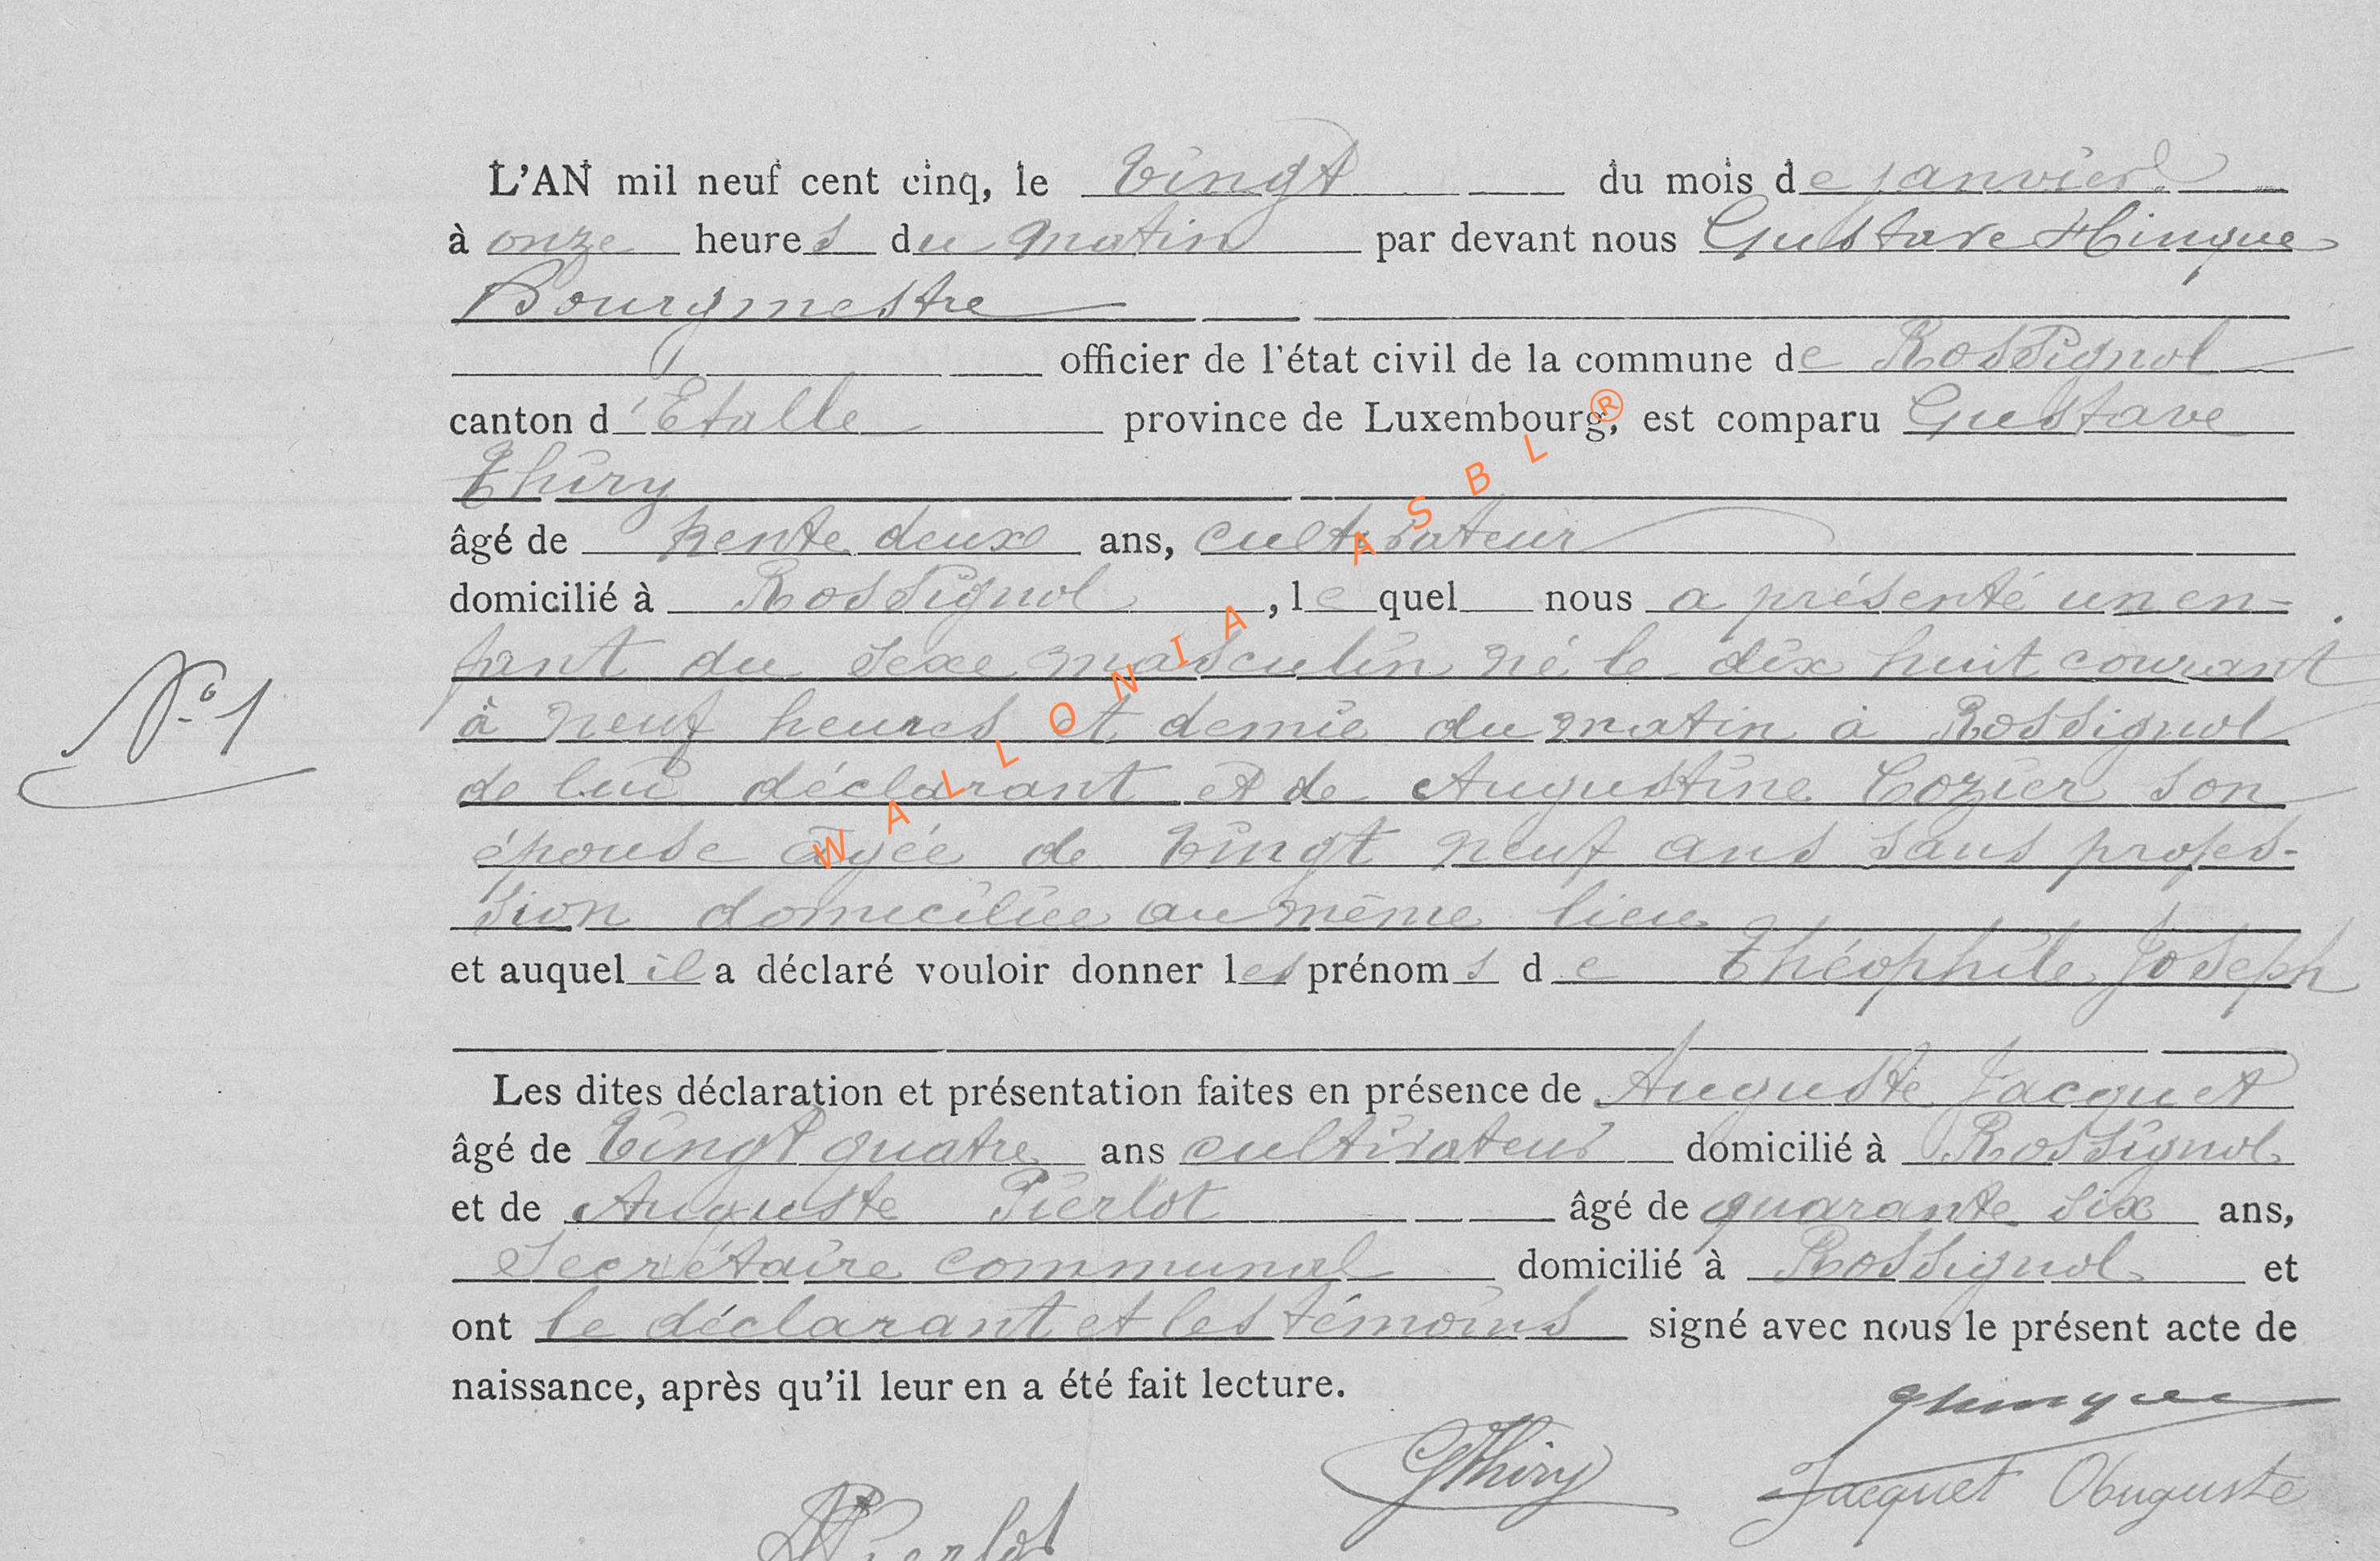 L'AN mil neuf cent cinq, le Vingt du mois de janvier
à onze heures du matin par devant nous Gustave Hinque
Bourgmestre
officier de l'état civil de la commune de Rossignol
canton d'Etalle province de Luxembourg, est comparu Gustave
Thiry
âgé de trente deux ans, cultivateur
domicilié à Rossignol, lequel nous a présenté un en-
fant du sexe masculin né le dix huit courant
N° 1
à neuf heures et demie du matin à Rossignol
de lui déclarant et de Augustine Cozier son
épouse âgée de Vingt neuf ans sans profes-
sion domiciliée au même lieu
et auquel il a déclaré vouloir donner les prénoms de Théophile Joseph
Les dites déclaration et présentation faites en présence de Auguste Jacquet
âgé de Vingt quatre ans cultivateur domicilié à Rossignol
et de Auguste Pierlot âgé de quarante six ans,
Secrétaire communal domicilié à Rossignol et
ont le déclarant et les témoins signé avec nous le présent acte de
naissance, après qu'il leur en a été fait lecture.
GHinque
GThiry
Jacquet Auguste
APierlot
WALLONIA ASBL®